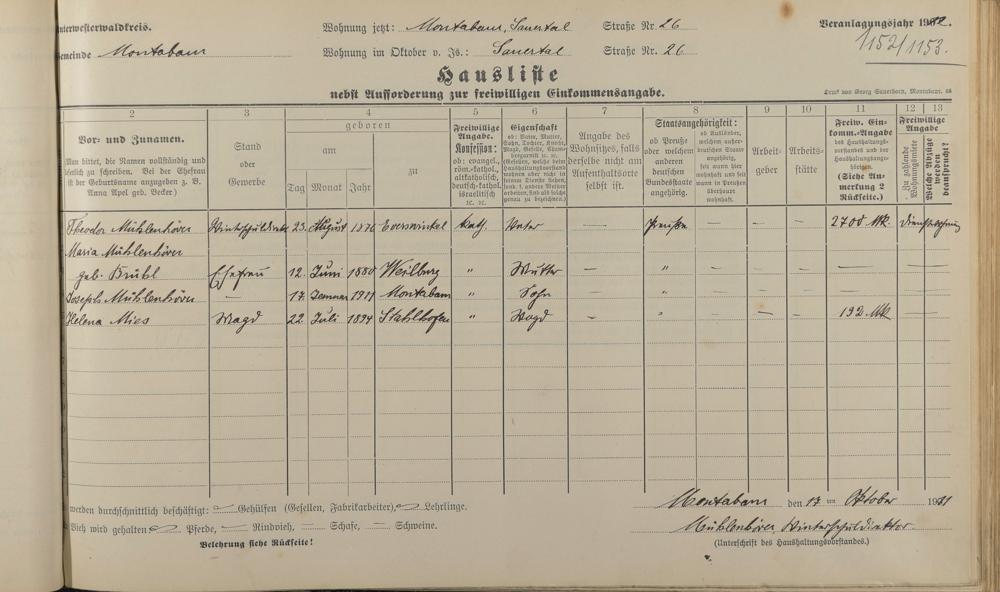 Unterwesterwaldkreis. Wohnung jetzt: Montabaur, Sauertal Straße Nr. 26 Veranlagungsjahr 1912.
Gemeinde Montabaur Wohnung im Oktober v. Js.: Sauertal Straße Nr. 26 1152/1153.
Hausliste
nebst Aufforderung zur freiwilligen Einkommensangabe.
Druck von Georg Sauerborn, Montabaur.
2 3 4 5 6 7 8 9 10 11 12 13
Vor- und Zunamen.
Man bittet, die Namen vollständig und
leserlich zu schreiben. Bei der Ehefrau
ist der Geburtsname anzugeben z. B.
Anna Apel geb. Becker)
Stand
oder
Gewerbe
geboren
am
zu
Tag Monat Jahr
Freiwillige
Angabe.
Konfession:
ob: evangel.,
röm.-kathol.,
altkatholisch,
deutsch-kathol.
israelitisch
ꝛc. ꝛc.
Eigenschaft
ob: Vater, Mutter,
Sohn, Tochter, Knecht,
Magd, Geselle,
Angabe des
Wohnsitzes, falls
derselbe nicht am
Aufenthaltsorte
selbst ist.
Staatsangehörigkeit:
ob Preuße
oder welchem
anderen
deutschen
Bundesstaate
angehörig.
ob Ausländer,
welchem außer-
deutschen Staate
angehörig,
seit wann hier
wohnhaft und
seit wann in
Preußen
überhaupt
wohnhaft.
Arbeit-
geber
Arbeits-
stätte
Freiw. Ein-
komm.-Angabe
des Haushaltungs-
vorstandes und der
Haushaltungsange-
hörigen.
(Siehe An-
merkung 2
Rückseite.)
Freiwillige
Angabe
Zu zahlende
Wohnungsmiete
Welche Abzüge
werden
beansprucht?
Theodor Mühlenhöver Wintschuldirekt 23. August 1876 Everswinkel kath. Vater — Preuße — — — 2700 Mk. Dienstwohnung
Maria Mühlenhöver
geb. Krühl Ehefrau 12. Juni 1880 Weilburg " Mutter — " — — — —
Joseph Mühlenhöver — 17. Januar 1911 Montabaur " Sohn — " — — — —
Helena Mies Magd 22. Juli 1894 Stahlhofen " Magd — " — — — 192 Mk —
werden durchschnittlich beschäftigt: — Gehülfen (Gesellen, Fabrikarbeiter), — Lehrlinge.
Vieh wird gehalten — Pferde, — Rindvieh, — Schafe, — Schweine.
Belehrung siehe Rückseite!
Montabaur den 17ten Oktober 1911
Mühlenhöver, Winterschuldirektor
(Unterschrift des Haushaltungsvorstandes.)